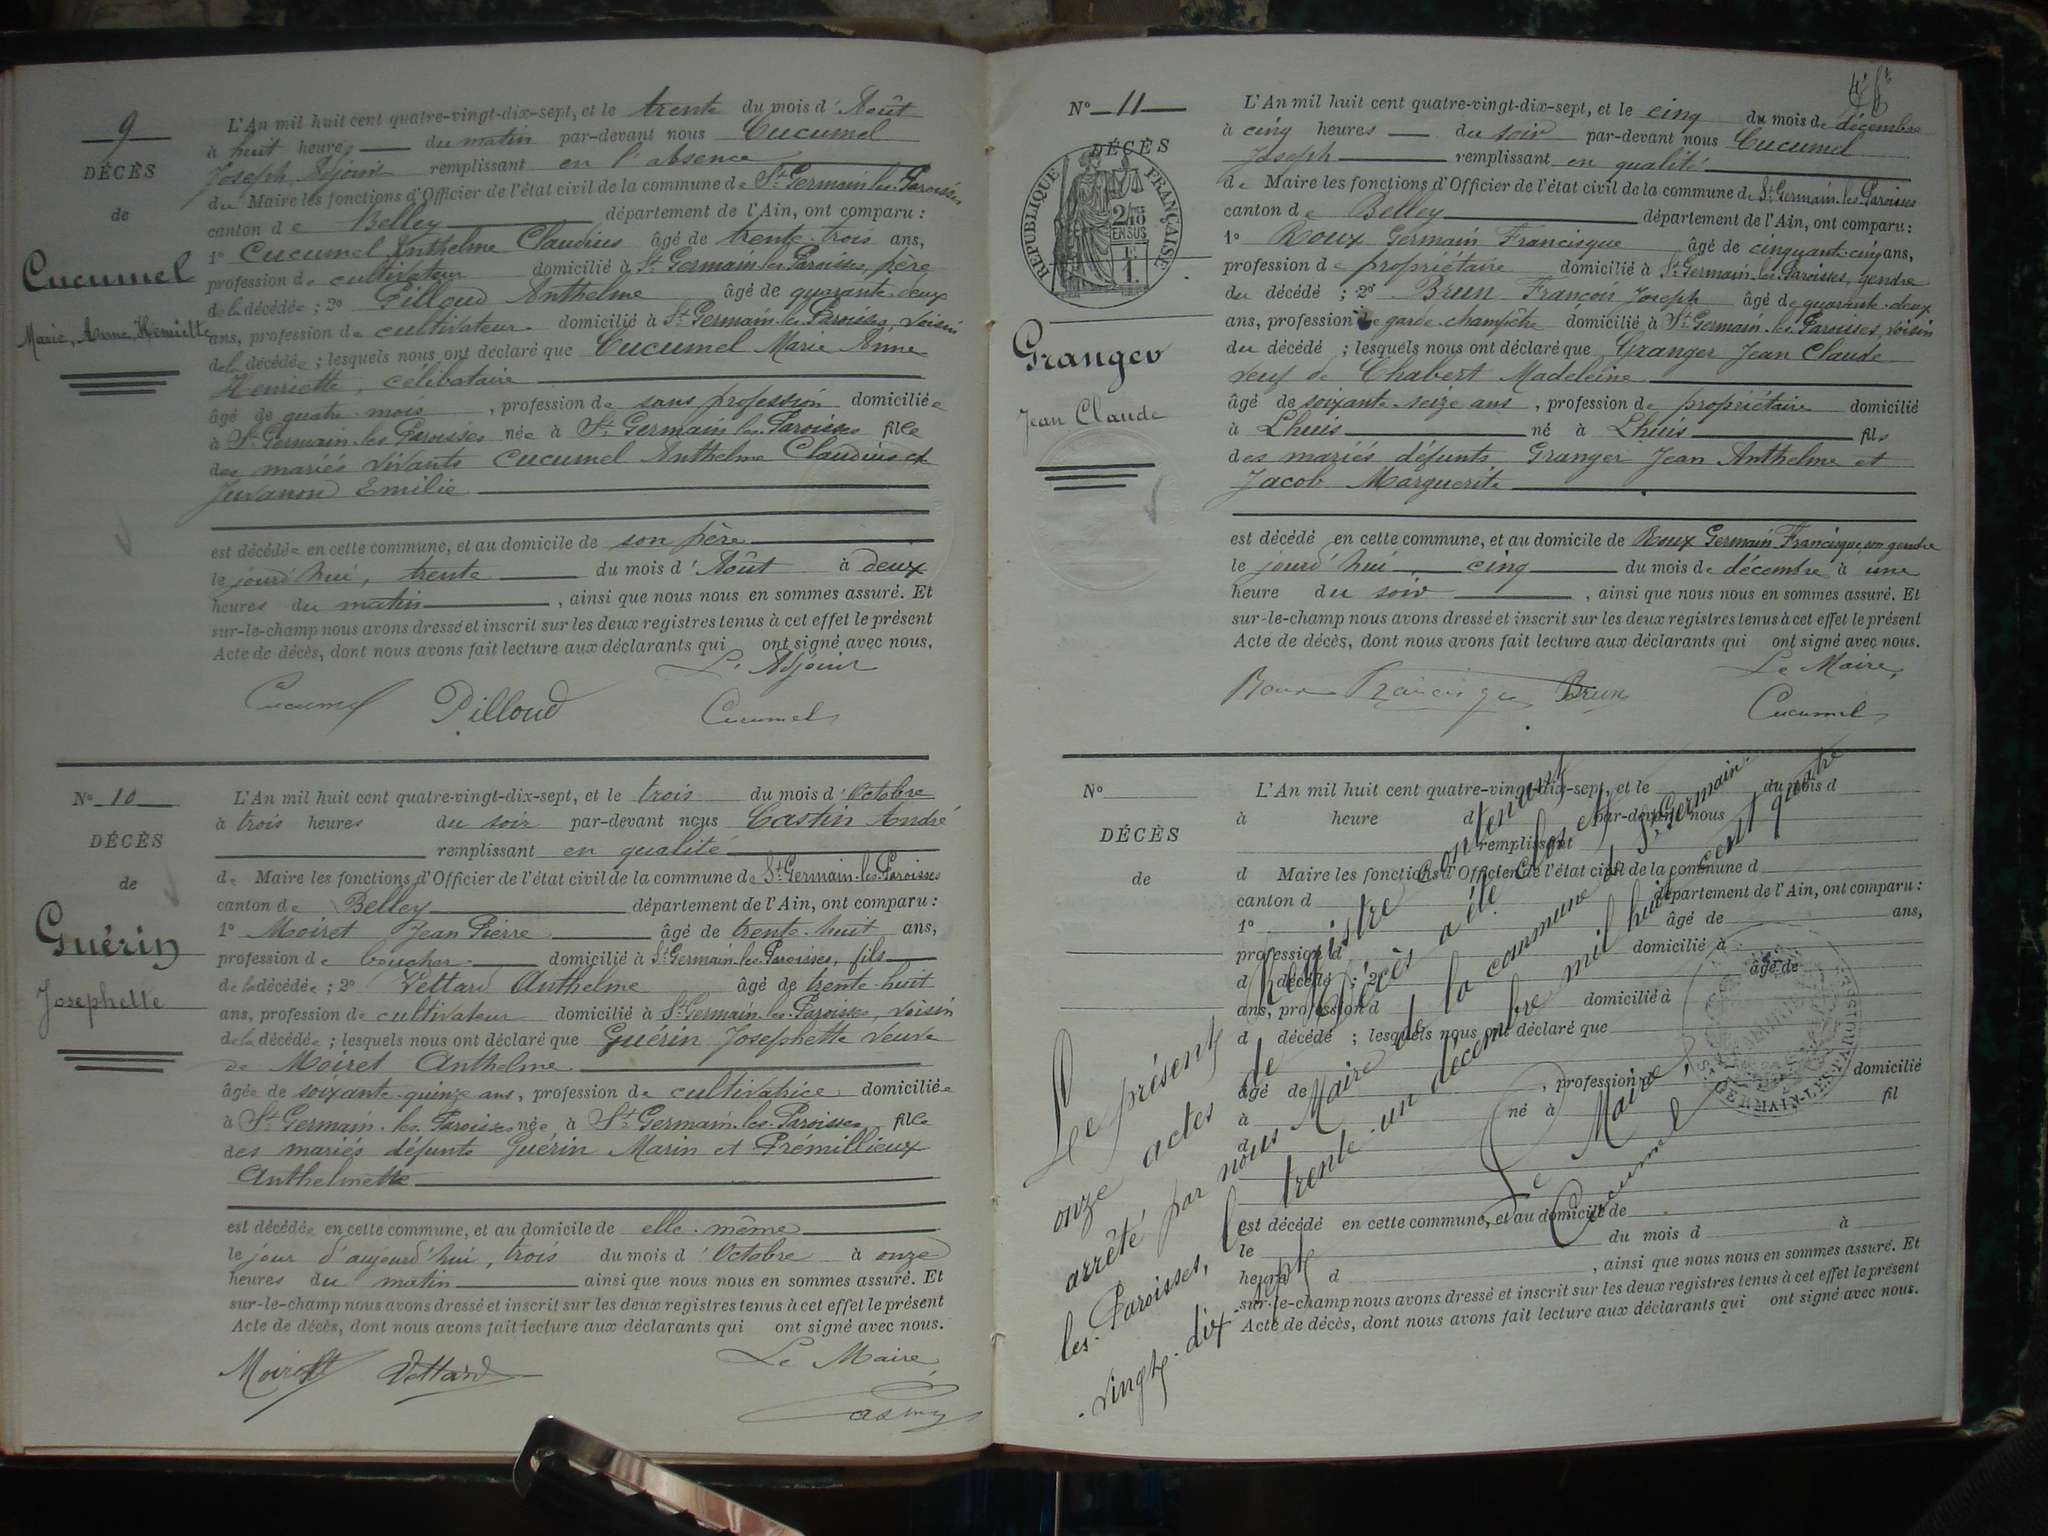 9
DÉCÈS
de
Cucumel
Marie, Anne, Henriette
L'An mil huit cent quatre-vingt-dix-sept, et le trente du mois d'Août
à huit heures du matin par-devant nous Cucumel
Joseph, Adjoint remplissant en l'absence
du Maire les fonctions d'Officier de l'état civil de la commune de St Germain-les-Paroisses
canton de Belley département de l'Ain, ont comparu :
1° Cucumel Anthelme Claudius âgé de trente-trois ans,
profession de cultivateur domicilié à St Germain les Paroisses, père
de la décédée ; 2° Pilloud Anthelme âgé de quarante-deux
ans, profession de cultivateur domicilié à St Germain-les-Paroisses, voisin
de la décédée ; lesquels nous ont déclaré que Cucumel Marie Anne
Henriette, célibataire
âgé de quatre mois, profession de sans profession domiciliée
à St Germain-les-Paroisses née à St Germain les Paroisses fille
des mariés vivants Cucumel Anthelme Claudius et
Juvanon Emilie
est décédée en cette commune, et au domicile de son père
le jourd'hui, trente du mois d'Août à deux
heures du matin, ainsi que nous nous en sommes assuré. Et
sur-le-champ nous avons dressé et inscrit sur les deux registres tenus à cet effet le présent
Acte de décès, dont nous avons fait lecture aux déclarants qui ont signé avec nous.
L'Adjoint
Cucumel Pilloud Cucumel
N° 10
DÉCÈS
de
Guérin
Josephette
L'An mil huit cent quatre-vingt-dix-sept, et le trois du mois d'Octobre
à trois heures du soir par-devant nous Castin André
remplissant en qualité
de Maire les fonctions d'Officier de l'état civil de la commune de St Germain-les-Paroisses
canton de Belley département de l'Ain, ont comparu :
1° Moiret Jean Pierre âgé de trente-huit ans,
profession de boucher domicilié à St Germain-les-Paroisses, fils
de la décédée ; 2° Vettard Anthelme âgé de trente-huit
ans, profession de cultivateur domicilié à St Germain-les-Paroisses, voisin
de la décédée ; lesquels nous ont déclaré que Guérin Josephette veuve
de Moiret Anthelme
âgée de soixante-quinze ans, profession de cultivatrice domiciliée
à St Germain-les-Paroisses née à St Germain-les-Paroisses fille
des mariés défunts Guérin Marin et Prémillieux
Anthelmette
est décédée en cette commune, et au domicile de elle-même
le jour d'aujourd'hui, trois du mois d'Octobre à onze
heures du matin ainsi que nous nous en sommes assuré. Et
sur-le-champ nous avons dressé et inscrit sur les deux registres tenus à cet effet le présent
Acte de décès, dont nous avons fait lecture aux déclarants qui ont signé avec nous.
Le Maire,
Moiret Vettard
N° 11
DÉCÈS
RÉPUBLIQUE FRANÇAISE
2/10 EN SUS
Granger
Jean Claude
L'An mil huit cent quatre-vingt-dix-sept, et le cinq du mois de décembre
à cinq heures du soir par-devant nous Cucumel
Joseph remplissant en qualité
de Maire les fonctions d'Officier de l'état civil de la commune de St Germain-les-Paroisses
canton de Belley département de l'Ain, ont comparu :
1° Roux Germain Francisque âgé de cinquante-cinq ans,
profession de propriétaire domicilié à St Germain-les-Paroisses, gendre
du décédé ; 2° Brun François Joseph âgé de quarante-deux
ans, profession de garde-champêtre domicilié à St Germain-les-Paroisses, voisin
du décédé ; lesquels nous ont déclaré que Granger Jean Claude
veuf de Chabert Madeleine
âgé de soixante-seize ans, profession de propriétaire domicilié
à Lhuis né à Lhuis fils
des mariés défunts Granger Jean Anthelme et
Jacob Marguerite
est décédé en cette commune, et au domicile de Roux Germain Francisque, son gendre
le jourd'hui cinq du mois de décembre à une
heure du soir, ainsi que nous nous en sommes assuré. Et
sur-le-champ nous avons dressé et inscrit sur les deux registres tenus à cet effet le présent
Acte de décès, dont nous avons fait lecture aux déclarants qui ont signé avec nous.
Le Maire,
Roux Francisque Brun Cucumel
N°
DÉCÈS
de
L'An mil huit cent quatre-vingt-dix-sept, et le du mois d
à heure d par-devant nous
remplissant
d Maire les fonctions d'Officier de l'état civil de la commune d
canton d département de l'Ain, ont comparu :
1° âgé de ans,
profession d domicilié à
d décédé ; 2° âgé de
ans, profession d domicilié à
d décédé ; lesquels nous ont déclaré que
âgé de , profession d domicilié
à né à fil
d
est décédé en cette commune, et au domicile de
le du mois d à
heure d , ainsi que nous nous en sommes assuré. Et
sur-le-champ nous avons dressé et inscrit sur les deux registres tenus à cet effet le présent
Acte de décès, dont nous avons fait lecture aux déclarants qui ont signé avec nous.
Le présent Registre contenant
onze actes de décès a été clos et
arrêté par nous Maire de la commune de St Germain-
les-Paroisses, le trente-un décembre mil huit cent quatre
-vingt-dix-sept
Le Maire,
Cucumel
ST GERMAIN-LES-PAROISSES